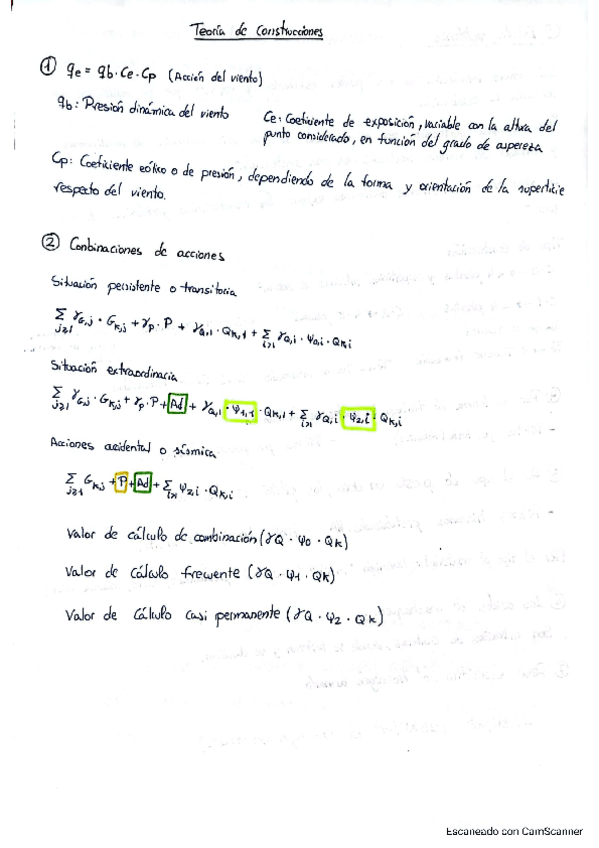 Teoría de Construcciones
① qe = qb · Ce · Cp (Acción del viento)
qb: Presión dinámica del viento
Ce: Coeficiente de exposición, variable con la altura del
punto considerado, en función del grado de aspereza
Cp: Coeficiente eólico o de presión, dependiendo de la forma y orientación de la superficie
respecto del viento.
② Conbinaciones de acciones
Situación persistente o transitoria
∑ j≥1 γG,j · Gk,j + γp · P + γQ,1 · Qk,1 + ∑ i>1 γQ,i · Ψ0,i · Qk,i
Situación extraordinaria
∑ j≥1 γG,j · Gk,j + γp · P + Ad + γQ,1 · Ψ1,1 · Qk,1 + ∑ i>1 γQ,i · Ψ2,i · Qk,i
Acciones acidental o sísmica
∑ j≥1 Gk,j + P + Ad + ∑ i>1 Ψ2,i · Qk,i
Valor de cálculo de combinación (γQ · Ψ0 · Qk)
Valor de Cálculo frecuente (γQ · Ψ1 · Qk)
Valor de Cálculo casi permanente (γQ · Ψ2 · Qk)
Escaneado con CamScanner